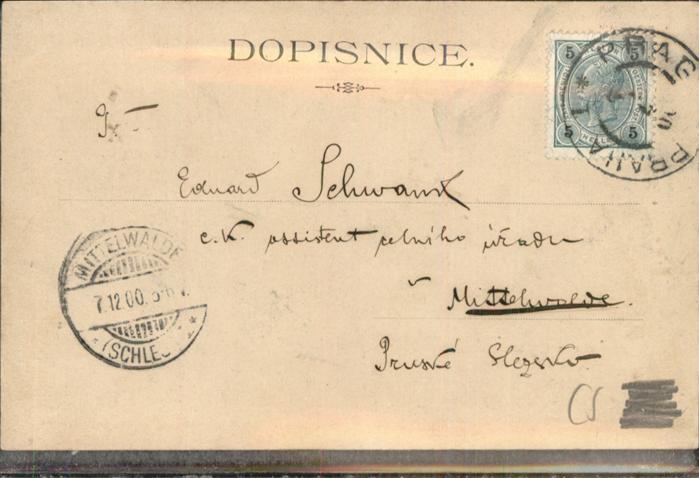 DOPISNICE.
5 5
5 5
PRAG
PRAHA
Eduard Schwank
c.k. assistent celního úřadu
v
Mittelwalde.
Pruské Slezsko
MITTELWALDE
7.12.00.
(SCHLES
CS